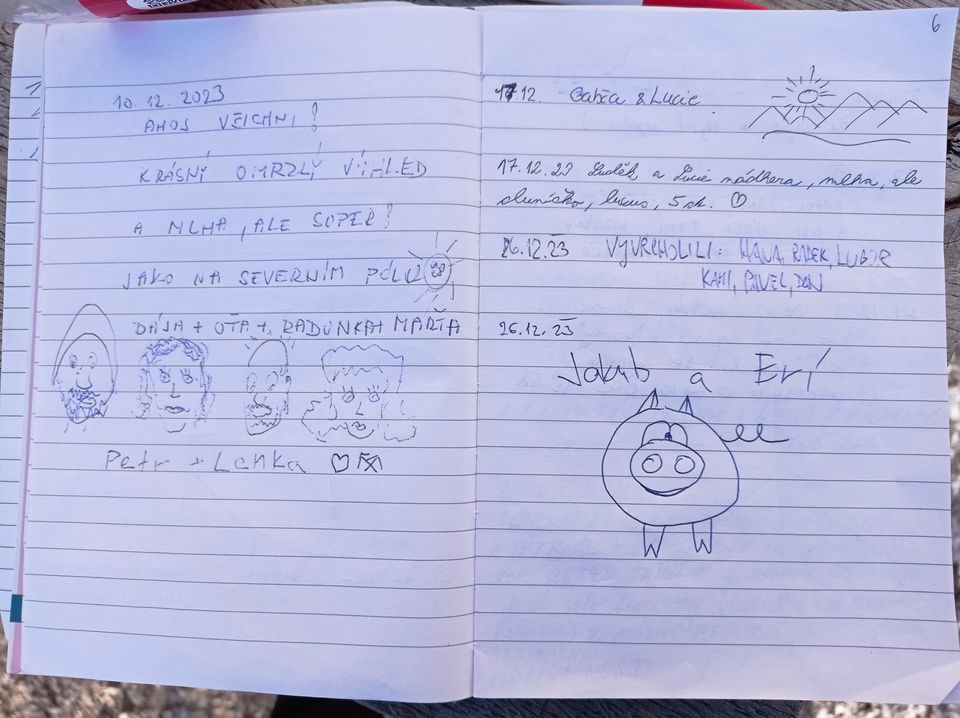 10.12.2023
AHOJ VŠICHNI!
KRÁSNÍ OMRZLÝ VÍHLED
A MLHA, ALE SUPER!
JAKO NA SEVERNÍM PÓLU
DÁJA + OŤA + RADUNKA + MÁŘA
Petr + Lenka ♡
6
17.12. Gabča & Lucie
17.12.23 Luděk a Lucie nádhera, mlha, ale
sluníčko, luxus, 5 st. ♡
26.12.23 VYVRCHOLILI: HANA, RADEK, LUBOR
KAMI, PAVEL, DAN
26.12.23
Jakub a Erí